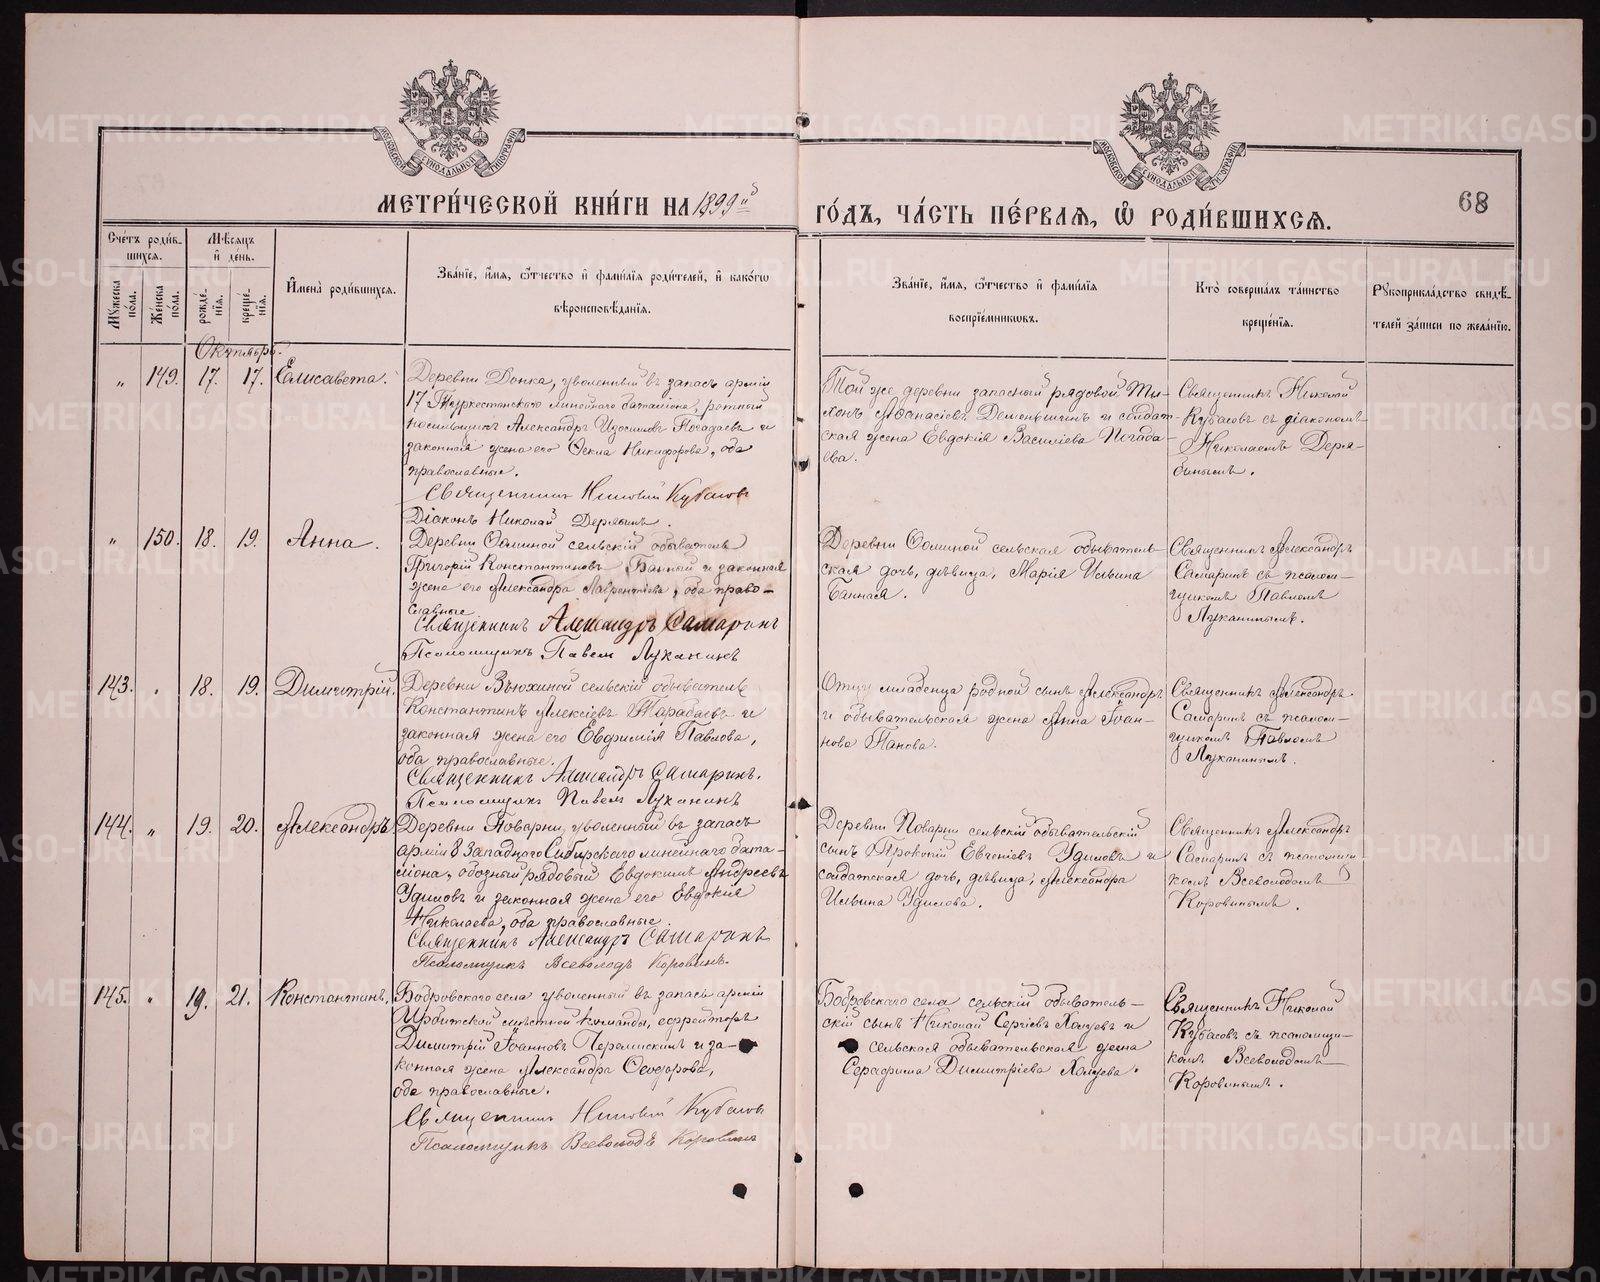 МЕТРИ́ЧЕСКОЙ КНИ́ГИ НА 1899й
ГО́ДЪ, ЧА́СТЬ ПЕ́РВАѦ, Ѽ РОДИ́ВШИХСѦ.
68
Счетъ роди́в-
шихсѧ.
Мѣсѧцъ
и день.
Мꙋжеска пола.
Женска пола.
рожде-
нїѧ.
креще-
нїѧ.
Имена̀ роди́вшихсѧ.
Зва́нїе, и́мѧ, ѻ҆́тчество и фами́лїѧ роди́телей, и како́гѡ
вѣроисповѣ́данїѧ.
Зва́нїе, и́мѧ, ѻ҆́тчество и фами́лїѧ
воспрїе́мникѡвъ.
Кто̀ соверша́лъ та́инство
креще́нїѧ.
Рꙋкоприкла́дство свидѣ́-
телей за́писи по жела́нїю.
Октябрь.
„ 149. 17. 17. Елисавета.
Деревни Донка, уволенный въ запасъ арміи
17 Туркестанскаго линейнаго баталіона, ротный
носильщикъ Александръ Изосимовъ Погадаевъ и
законная жена его Ѳекла Никифорова, оба
православные.
Священникъ Николай Кубасовъ
Діаконъ Николай Дерябинъ.
Той же деревни запасный рядовой Ти-
хонъ Аѳанасіевъ Деменьшинъ и солдат-
ская жена Евдокія Василіева Погада-
ева.
Священникъ Николай
Кубасовъ съ діакономъ
Николаемъ Деря-
бинымъ.
„ 150. 18. 19. Анна.
Деревни Ѳоминой сельскій обыватель
Григорій Константиновъ Банный и законная
жена его Александра Лаврентіева, оба право-
славные.
Священникъ Александръ Самаринъ
Псаломщикъ Павелъ Луканинъ
Деревни Ѳоминой сельская обыватель-
ская дочь, дѣвица, Марія Ильина
Банная.
Священникъ Александръ
Самаринъ съ псалом-
щикомъ Павломъ
Луканинымъ.
143. „ 18. 19. Димитрій.
Деревни Вьюхиной сельскій обыватель
Константинъ Алексіевъ Тарабаевъ и
законная жена его Евфимія Павлова,
оба православные.
Священникъ Александръ Самаринъ.
Псаломщикъ Павелъ Луканинъ
Отцу младенца родной сынъ Александръ
и обывательская жена Анна Іоан-
нова Панова.
Священникъ Александръ
Самаринъ съ псалом-
щикомъ Павломъ
Луканинымъ.
144. „ 19. 20. Александръ
Деревни Поварни, уволенный въ запасъ
арміи 8 Западнаго Сибирскаго линейнаго бата-
ліона, обозный рядовый Евдокимъ Андреевъ
Удиловъ и законная жена его Евдокія
Николаева, оба православные.
Священникъ Александръ Самаринъ
Псаломщикъ Всеволодъ Коровинъ.
Деревни Поварни сельскій обывательскій
сынъ Евгеніевъ Удиловъ и
солдатская дочь, дѣвица, Александра
Ильина Удилова.
Священникъ Александръ
Самаринъ съ псаломщи-
комъ Всеволодомъ
Коровинымъ.
145. „ 19. 21. Константинъ.
Бобровскаго села уволенный въ запасъ арміи
Ирбитской мѣстной команды, ефрейторъ
Димитрій Іоанновъ Черемискинъ и за-
конная жена Александра Ѳеодорова,
оба православные.
Священникъ Николай Кубасовъ
Псаломщикъ Всеволодъ Коровинъ
Бобровскаго села сельскій обыватель-
скій сынъ Николай Сергіевъ и
сельская обывательская жена
Серафима Димитріева
Священникъ Николай
Кубасовъ съ псаломщи-
комъ Всеволодомъ
Коровинымъ.